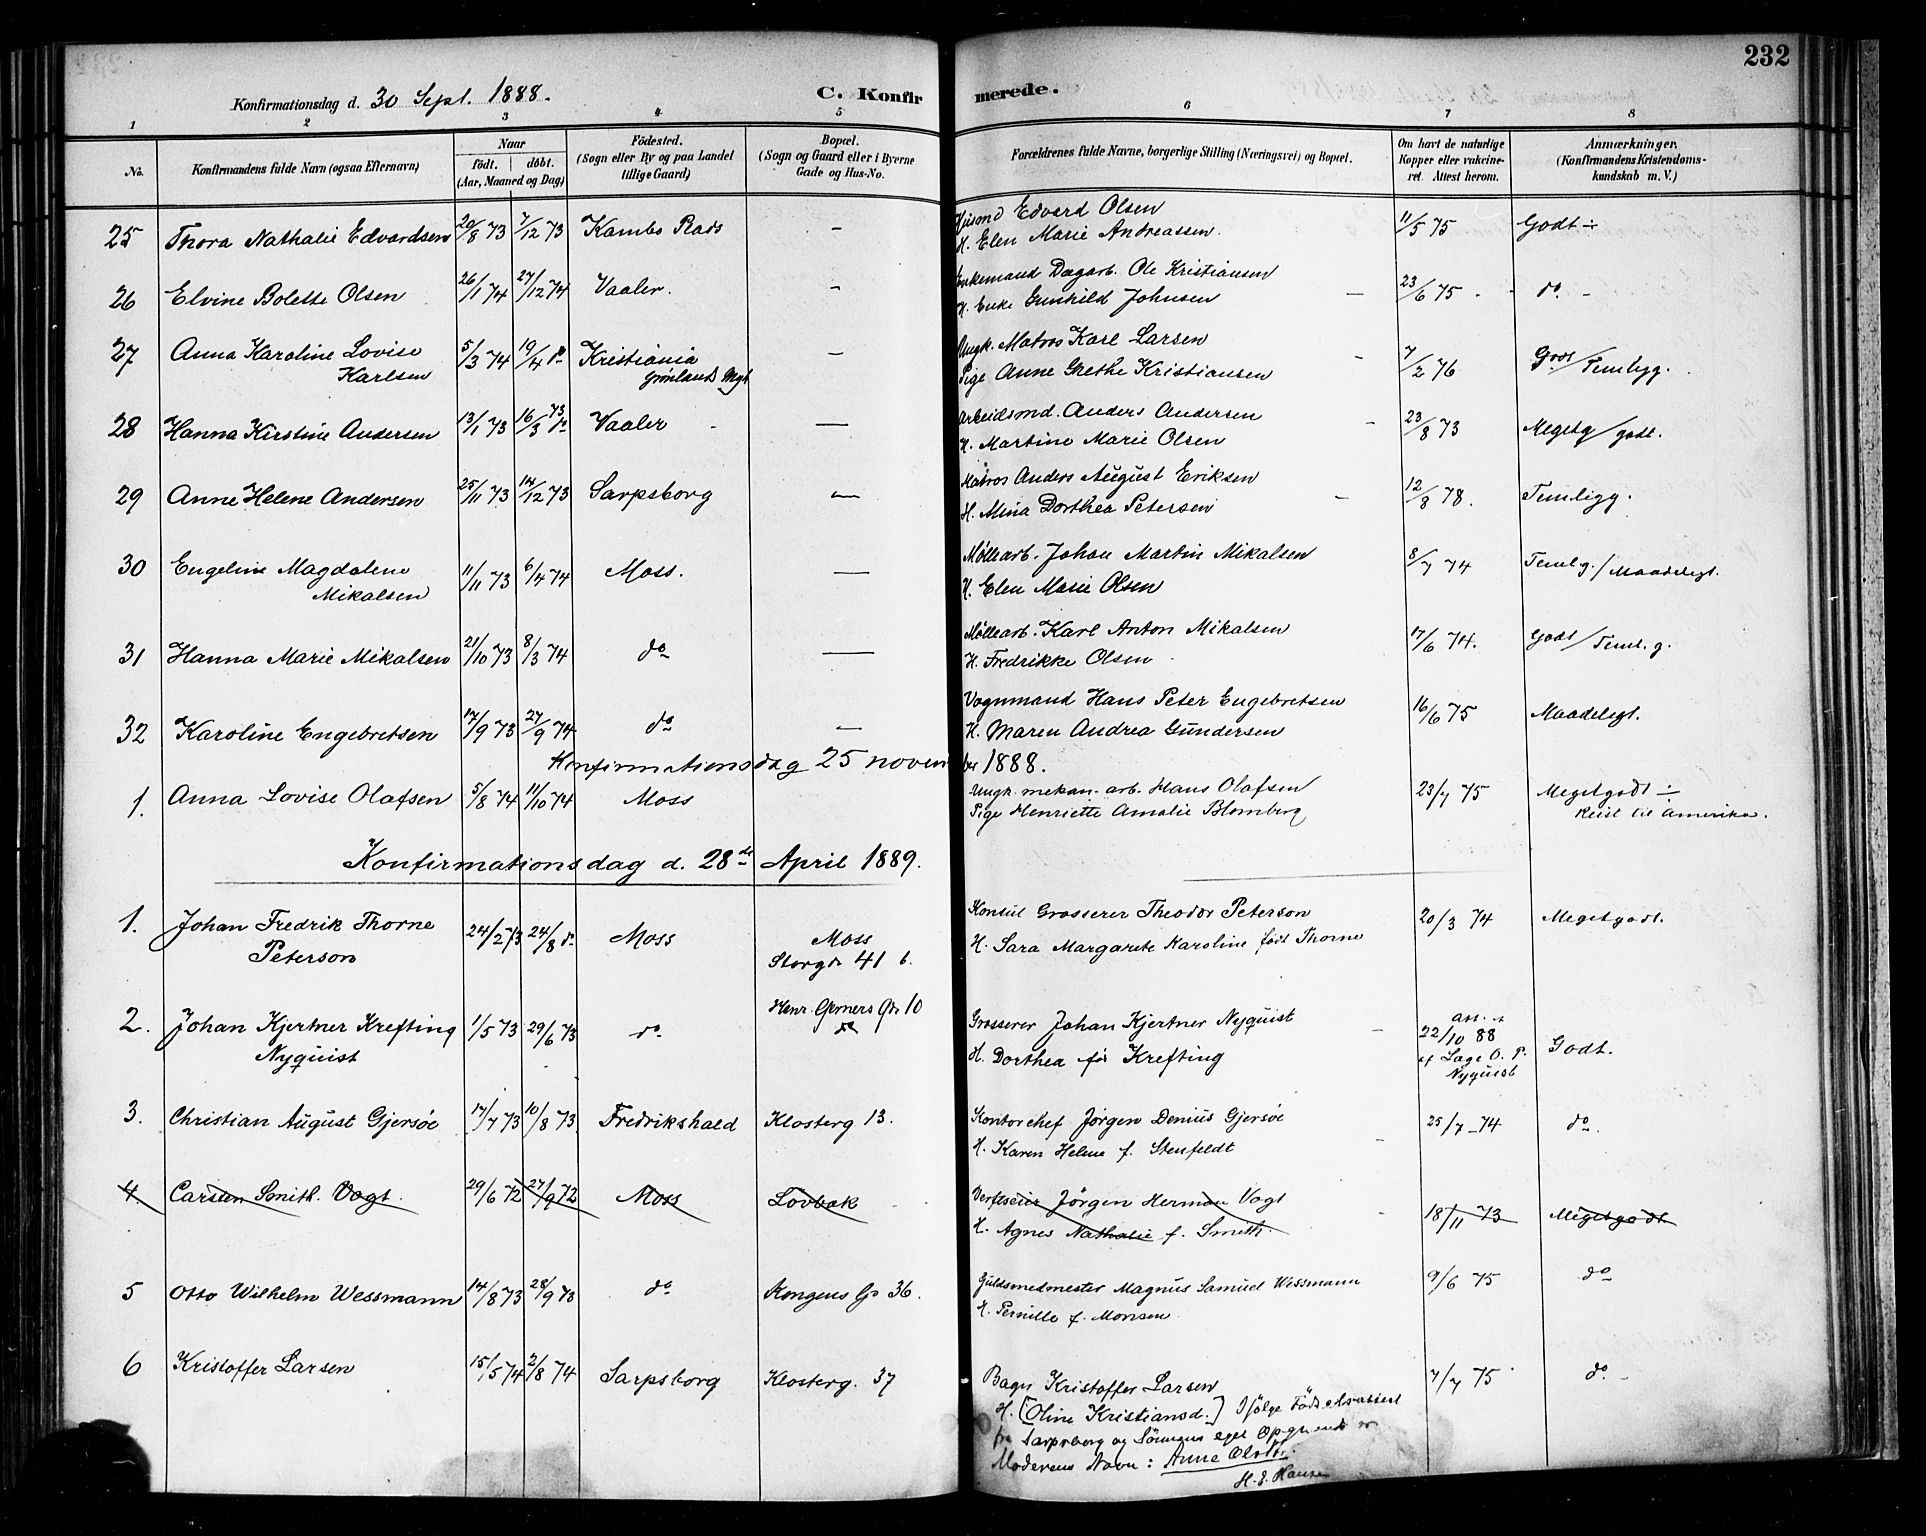 232
Konfirmationsdag d. 30 Sept. 1888.
C. Konfirmerede.
1 2 3 4 5 6 7 8
No.
Konfirmandens fulde Navn (ogsaa Efternavn)
Naar
födt. | döbt.
(Aar, Maaned og Dag)
Födested.
(Sogn eller By og paa Landet
tillige Gaard)
Bopæl.
(Sogn og Gaard eller i Byerne
Gade og Hus-No.
Forældrenes fulde Navne, borgerlige Stilling (Næringsvei) og Bopæl.
Om havt de naturlige
Kopper eller vakcine-
ret. Attest herom.
Anmærkninger.
(Konfirmandens Kristendoms-
kundskab m. V.)
25 Thora Nathalie Edvardsen 20/8 73 7/12 73 Kambo Rads -
Husmd Edvard Olsen
H. Elen Marie Andreassen.
11/5 75 Godt ÷
26 Elvine Bolette Olsen 26/1 74 27/12 74 Vaaler. -
Enkemand Dagarb. Ole Kristiansen
H. Enke Gunhild Johnsen
23/6 75 do
27 Anna Karoline Lovise
Karlsen
5/3 74 19/4 do Kristiania
Grönlands Mgh -
Ungk. Matros Karl Larsen
Pige Anne Grethe Kristiansen
7/2 76 Godt/Temligg.
28 Hanna Kirstine Andersen 13/1 73 16/3 73 do Vaaler -
Arbeidsmd. Anders Andersen
H. Martine Marie Olsen
23/8 73 Megetg/godt.
29 Anne Helene Andersen 25/11 73 14/12 73 Sarpsborg -
Matros Anders August Eriksen
H. Mina Dorthea Petersen
12/8 78. Temligg.
30 Engeline Magdalene
Mikalsen
11/11 73 6/4 74 Moss. -
Möllearb. Johan Martin Mikalsen
H. Elen Marie Olsen
8/7 74 Teml g./Maadeligt.
31 Hanna Marie Mikalsen 21/10 73 8/3 74 do -
Möllearb. Karl Anton Mikalsen
H. Fredrikke Olsen
17/6 74. Godt/Teml. g.
32 Karoline Engebretsen 17/9 73 27/9 74 do -
Vognmand Hans Peter Engebretsen
H. Maren Andrea Gundersen
16/6 75 Maadeligt.
Konfirmationsdag 25 november 1888.
1. Anna Lovise Olafsen 5/8 74 11/10 74 Moss
Ungk. mekan. arb. Hans Olafsen
Pige Henriette Amalie Blomberg
23/7 75 Megetgodt ÷
Reist til Amerika.
Konfirmationsdag d. 28de April 1889.
1. Johan Fredrik Thorne
Peterson
24/2 73 24/8 do Moss Moss
Storgd. 41 b.
Konsul Grosserer Theodor Peterson
H. Sara Margarete Karoline födt Thorne
20/3 74 Megetgodt.
2. Johan Kjertner Krefting
Nyquist
1/5 73 29/6 73 do Henr. Gerners Gd. 10
do
Grosserer Johan Kjertner Nyquist
H. Dorthea för Krefting
att.
22/10 88
af Læge O. P.
Nyquist
Godt.
3. Christian August Gjersöe 17/7 73 10/8 73 Fredrikshald Klosterg 13.
Kontorchef Jörgen Denius Gjersöe
H. Karen Helene f. Stenfeldt
25/7 - 74 do.
4 Carsten Smith. Vogt. 29/6 72 27/9 72 Moss Lovbak
Verftseier Jörgen Herman Vogt
H. Agnes Nathalie f. Smith.
18/11 73 Megetgodt
5 Otto Wilhelm Wessmann 14/8 73 28/9 73 do Kongens Gd 36.
Guldsmedmester Magnus Samuel Wessmann
H. Pernille f. Monsen
9/6 75 do
6 Kristoffer Larsen 15/5 74 2/8 74 Sarpsborg Klosterg. 37
Bager Kristoffer Larsen
H. [Oline Kristiansd.] Ifölge Födselsattest
fra Sarpsborg og Sönnens eget Opgivende er
Moderens Navn: Anna Olsdtr.
H. E. Hansen
7/7 75 do.